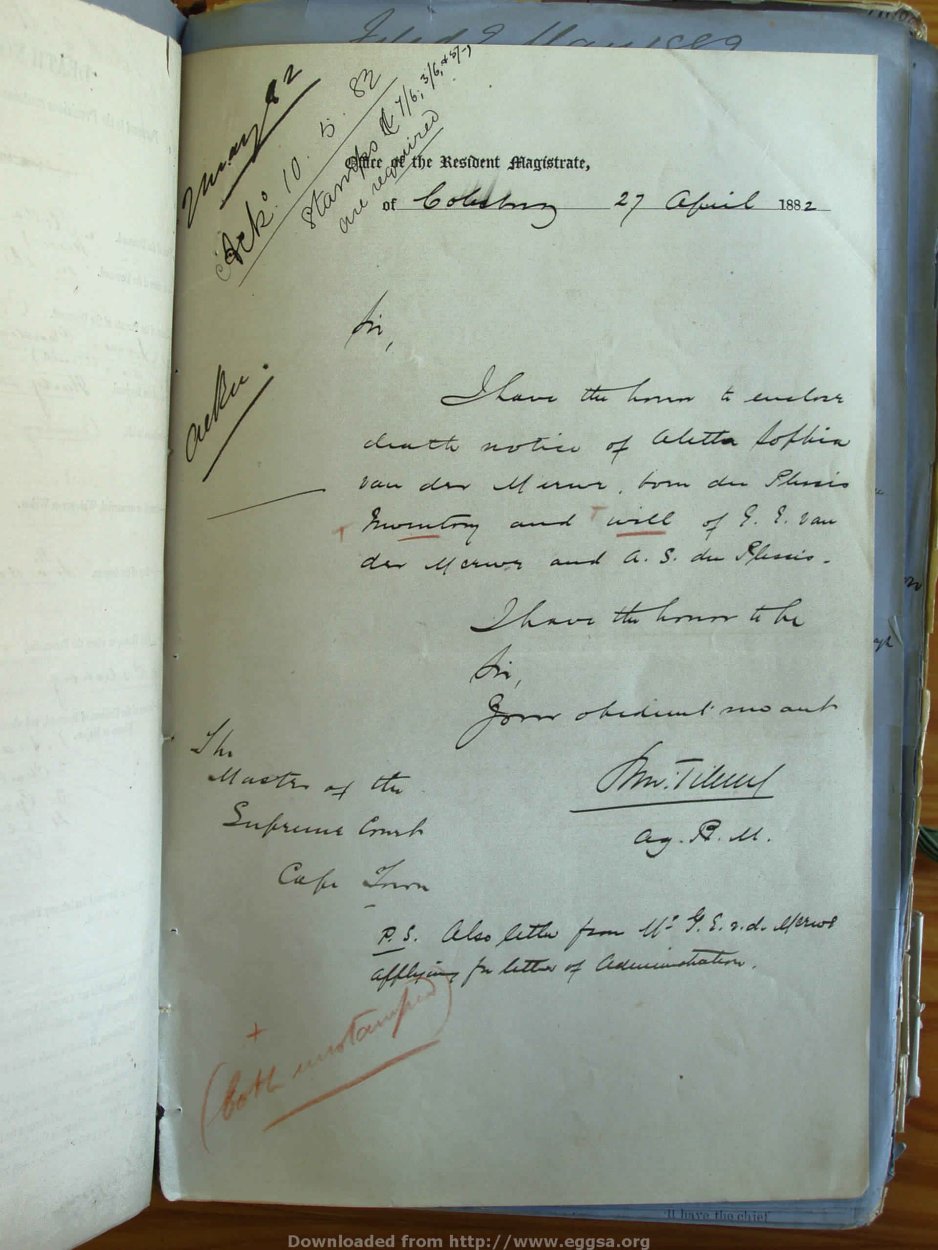 Filed 2 May 1882
2 May 82
Ack: 10. 5. 82
Stamps 7/6; 3/6, & 5/-,
are required
Office of the Resident Magistrate,
of Colesberg 27 April 1882
Sir,
I have the honor to enclose
death notice of Aletta Sophia
van der Merwe, born du Plessis
Inventory and will of G. E. van
der Merwe and A. S. du Plessis.
I have the honor to be
Sir,
Your obedient servant
Ag. R. M.
The
Master of the
Supreme Court
Cape Town
P.S. Also letter from Mr G. E. v. d. Merwe
applying for letter of Administration.
+
(both unstamped)
I have the chief
Downloaded from http://www.eggsa.org